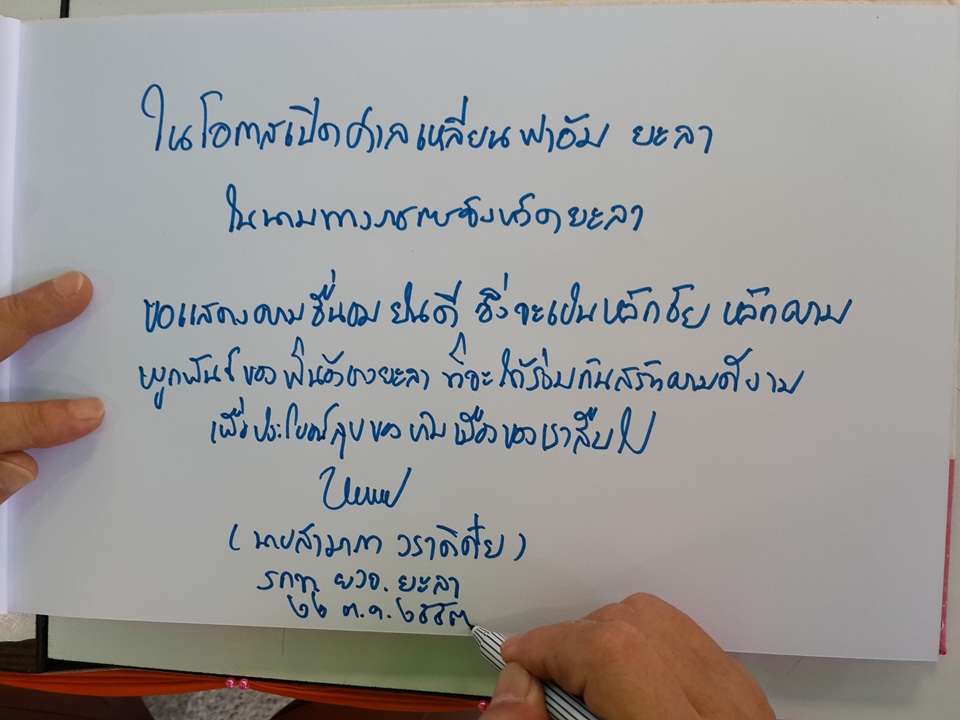 ในโอกาสเปิดศาลเหลี่ยนฟาอัม ยะลา
ในนามทางราชการจังหวัดยะลา
ขอแสดงความชื่นชม ยินดี ซึ่งจะเป็นหลักชัย หลักความ
ผูกพันธ์ของพี่น้องชาวยะลา ที่จะได้ร่วมกันสร้างความดีงาม
เพื่อประโยชน์สุขของบ้านเมืองของเราสืบไป
(นายสามารถ วราดิศัย)
รกท. ผวจ. ยะลา
๒๒ ต.ค. ๒๕๕๓